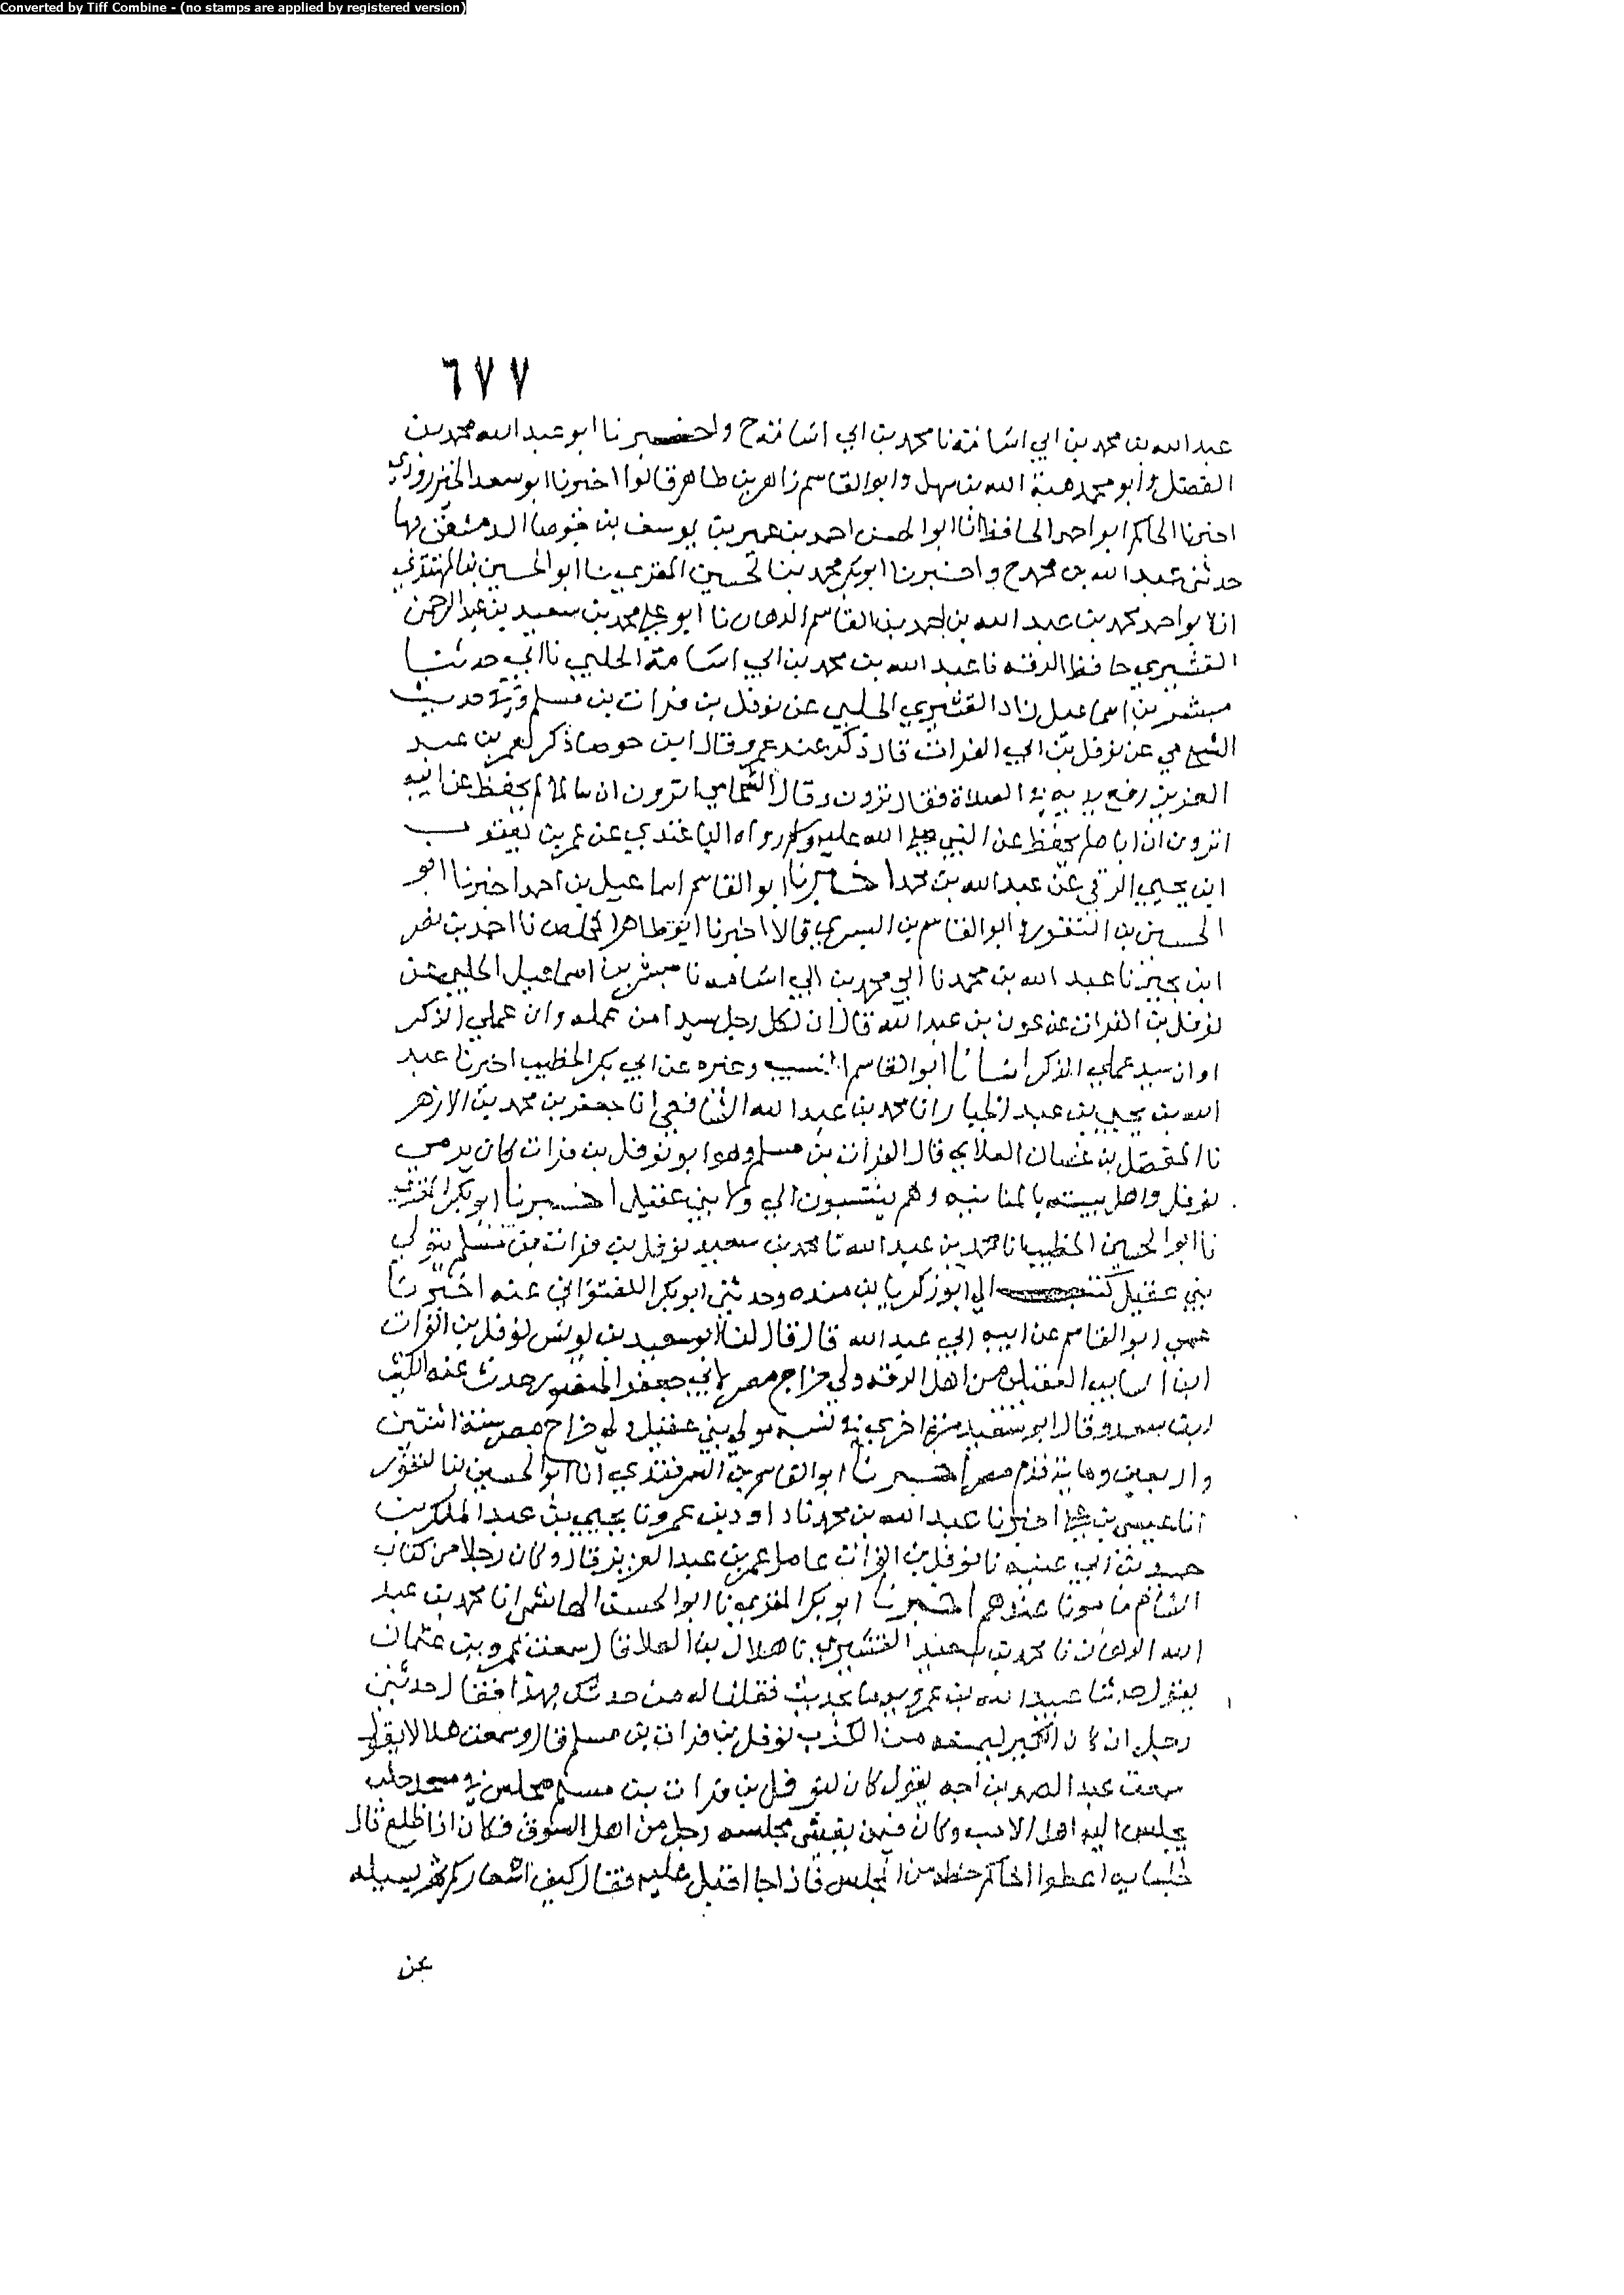 Converted by Tiff Combine - (no stamps are applied by registered version)
٦٧٧
عبد الله بن محمد بن ابي اسامة نا محمد بن ابي اسامة ح واخبرنا ابو عبد الله محمد بن
الفضل وابو محمد هبة الله بن سهل وابو القاسم زاهر بن طاهر قالوا اخبرنا ابو سعد الخنزروذي
اخبرنا الحاكم ابو احمد الحافظ انا ابو الحسن احمد بن عمير بن يوسف بن جوصا الدمشقي بها
حدثني عبد الله بن محمد ح واخبرنا ابو بكر محمد بن الحسين المقري نا ابو الحسين بن المهتدي
انا ابو احمد محمد بن عبد الله بن احمد بن القاسم الدهان نا ابو علي محمد بن سعيد بن عبد الرحمن
القشيري حافظ الرقه نا عبد الله بن محمد بن ابي اسامة الحلبي نا ابي حدثنا
مبشر بن اسماعيل زاد القشيري الحلبي عن نوفل بن فرات بن مسلم وفي حديث
الشحامي عن نوفل بن ابي الفرات قال ذكر عند عمر وقال ابن جوصا ذكر لعمر بن عبد
العزيز رفع يديه في الصلاة فقال ترون وقال الشحامي اترون ان سالما لم يحفظ عن ابيه
اترون ان اباه لم يحفظ عن النبي صلى الله عليه وسلم رواه الباغندي عن عمر بن يعقوب
ابن يحيى الرقي عن عبد الله بن محمد اخبرنا ابو القاسم اسماعيل بن احمد اخبرنا ابو
الحسين بن النقور وابو القاسم بن البسري قالا اخبرنا ابو طاهر المخلص نا احمد بن نصر
ابن بجير نا عبد الله بن محمد نا ابي محمد بن ابي اسامه نا مبشر بن اسماعيل الحلبي عن
نوفل بن الفرات عن عون بن عبد الله قال ان لكل رجل سيدا من عمله وان عملي الذكر
او ان سيد عملي الذكر انبانا ابو القاسم النسيب وغيره عن ابي بكر الخطيب اخبرنا عبد
الله بن يحيى بن عبد الجبار انا محمد بن عبد الله الشافعي انا جعفر بن محمد بن الازهر
نا المفضل بن غسان الغلابي قال الفرات بن مسلم وهو ابو نوفل بن فرات كان يرمي
نوفل واهل بيته بالمنانيه وهم ينتسبون الي ولا بني عقيل اخبرنا ابو بكر المقري
نا ابو الحسين الخطيب انا محمد بن عبد الله نا محمد بن سعيد نوفل بن فرات بن مسلم مولى
بني عقيل كتب الي ابو زكريا بن منده وحدثني ابو بكر اللفتواني عنه اخبرنا
عمي ابو القاسم عن ابيه ابي عبد الله قال قال لنا ابو سعيد بن يونس نوفل بن الفرات
ابن السايب العقيلي من اهل الرقه ولي خراج مصر لابي جعفر المنصور حدث عنه الليث
ابن سعد وقال ابو سعيد مرة اخرى في نسبه مولى بني عقيل ولي خراج مصر سنة اثنتين
واربعين ومايه قدم مصر اخبرنا ابو القاسم بن السمرقندي انا ابو الحسين بن النقور
انا عيسى بن علي اخبرنا عبد الله بن محمد نا داود بن عمرو نا يحيى بن عبد الملك بن
حميد بن ابي غنيه نا نوفل بن الفرات عامل عمر بن عبد العزيز قال وكان رجلا من كتاب
الشام مامونا عندهم اخبرنا ابو بكر المقري نا ابو الحسين الهاشمي انا محمد بن عبد
الله الدهان نا محمد بن سعيد القشيري نا هلال بن العلا قال سمعت عمرو بن عثمان
يقول حدثنا عبيد الله بن عمرو يوما بحديث فقلنا له من حدثك بهذا فقال حدثني
رجل ان كان الكبر ليمنعه من الكذب نوفل بن فرات بن مسلم قال وسمعت هلالا يقول
سمعت عبد الله بن جعفر يقول كان لنوفل بن فرات بن مسلم مجلس في مسجد حلب
يجلس اليه اهل الادب وكان فيمن يغشى مجلسه رجل من اهل السوق فكان اذا طلع قال
لجلسايه اعطوا الحاكم حظه من المجلس فاذا جا اقبل عليه فقال كيف اسعاركم ثم يسيله
عن